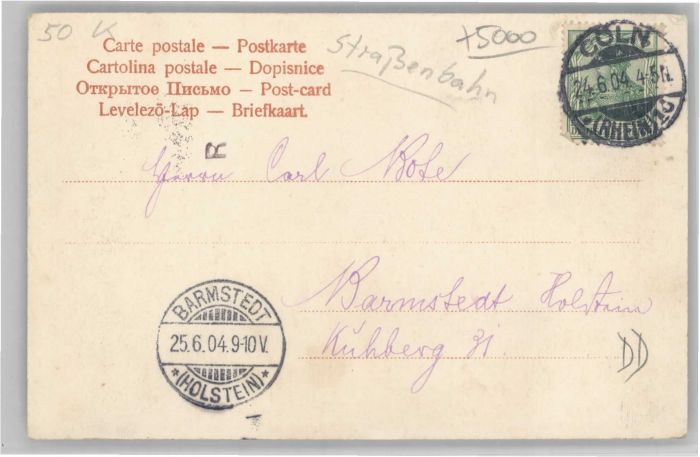 50 K
Carte postale — Postkarte
Cartolina postale — Dopisnice
Открытое Письмо — Post-card
Levelező-Lap — Briefkaart.
Straßenbahn
+5000
CÖLN
24.6.04. 4-5N.
*(RHEIN)1c
R
Herrn Carl Bote
BARMSTEDT
25.6.04.9-10V.
*(HOLSTEIN)*
Barmstedt Holstein
Kuhberg 31.
DD